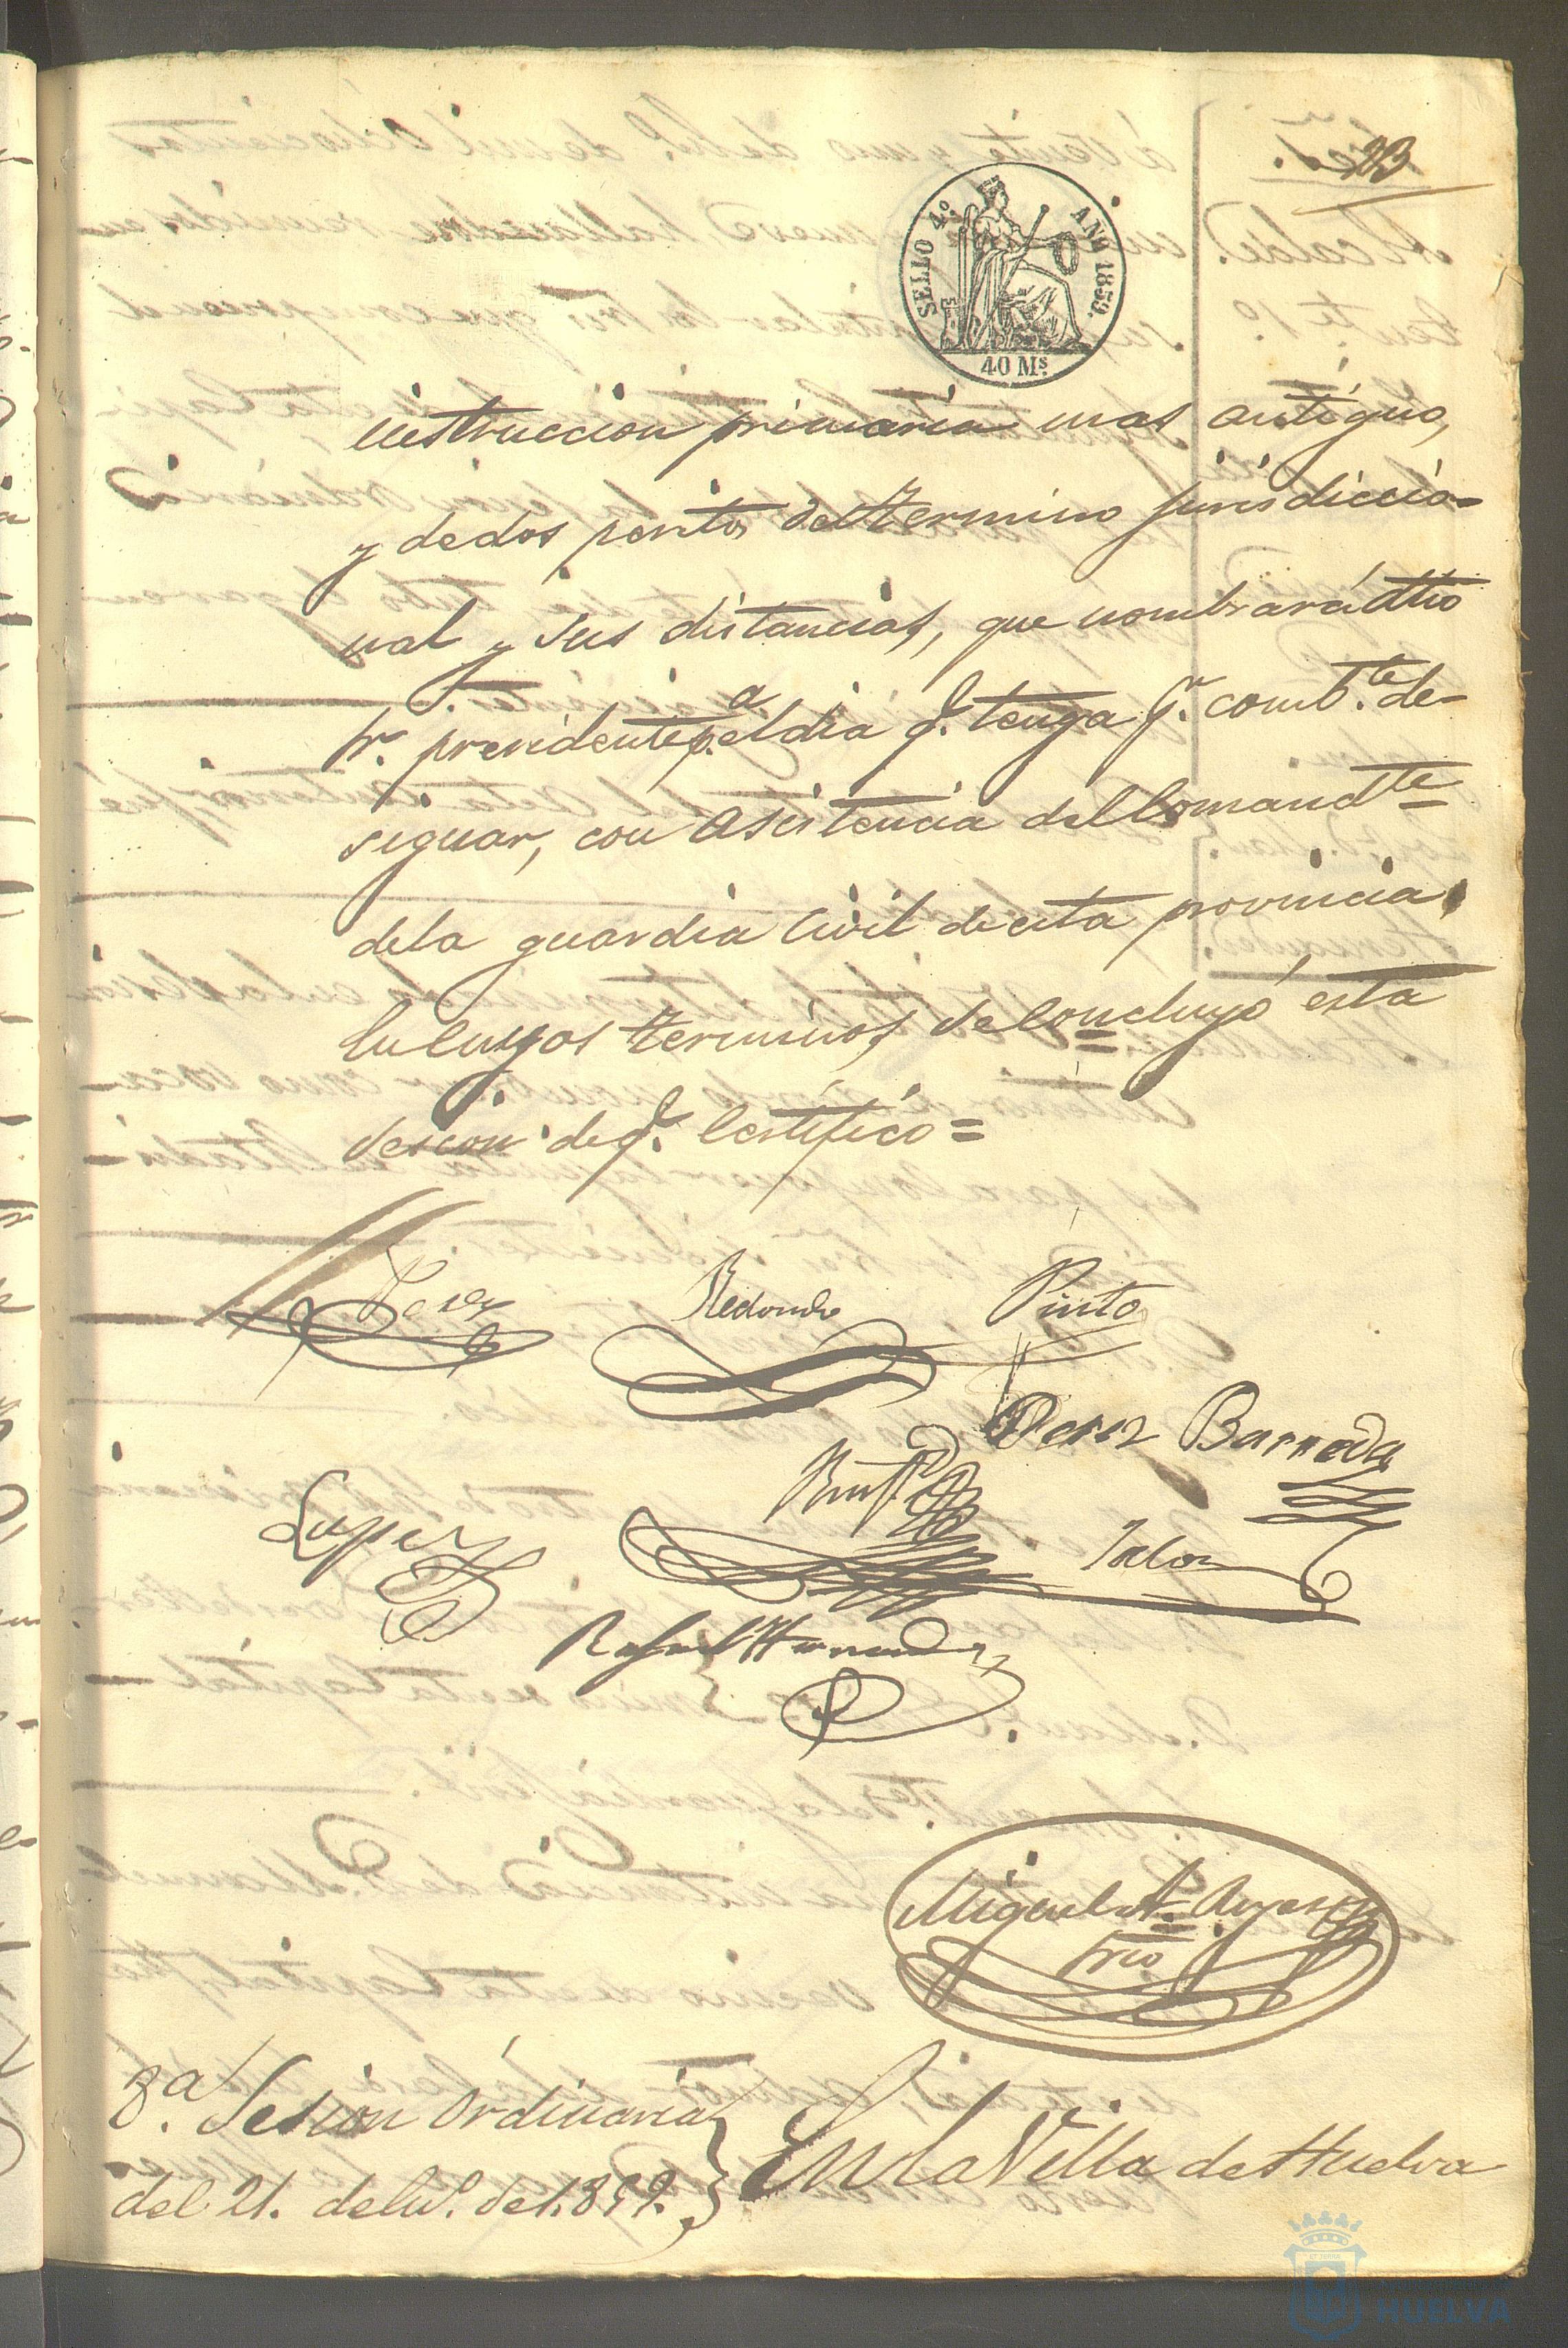 23
SELLO 4º. AÑO 1859.
40 Ms.
instruccion primaria mas antiguo,
y de dos peritos del termino jurisdiccio=
nal y sus distancias, que nombrará dho
Sr. presidente p.a el dia q.e tenga p.r comb.te de-
signar, con asistencia del Comandte
de la guardia Civil de esta provincia.
En cuyos terminos se concluyó esta
sesion de q.e Certifico=
Redondo Pinto
Perez Barreda
Lopez
Rafael Hernandez
Miguel A. Reyes
Srio
8.a Sesion Ordinaria
del 21. de En.o de 1.859.
En la Villa de Huelva
HUELVA